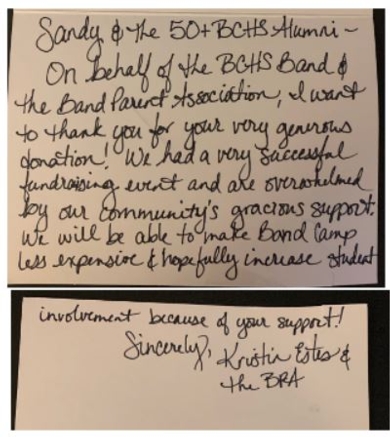 Sandy & the 50+ BCHS Alumni -
On behalf of the BCHS Band &
the Band Parent Association, I want
to thank you for your very generous
donation! We had a very successful
fundraising event and are overwhelmed
by our community's gracious support.
We will be able to make Band Camp
less expensive & hopefully increase student
involvement because of your support!
Sincerely, Kristin Estes &
the BPA